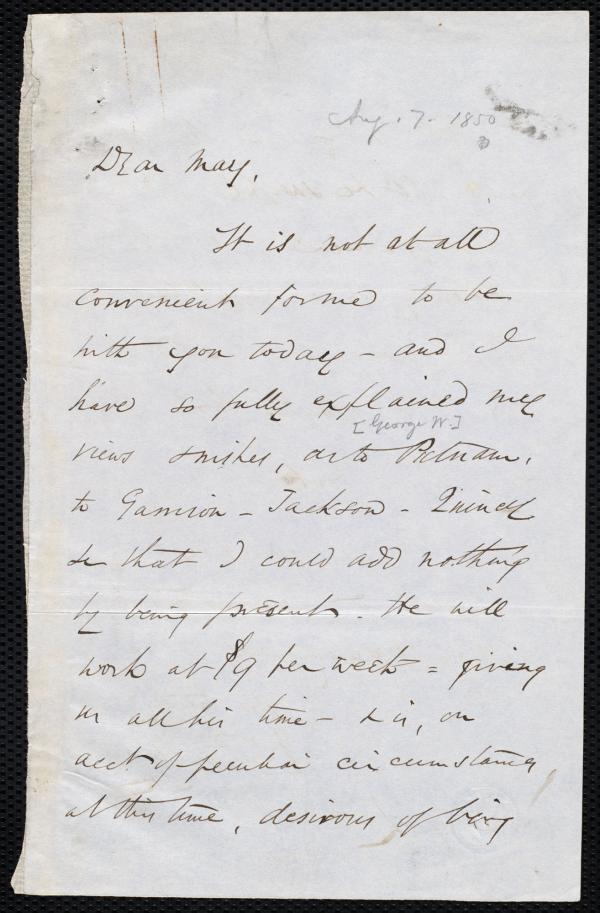 Aug. 7. 1850
Dear May,
It is not at all
convenient for me to be
with you today - and I
have so fully explained my
[George W.]
views & wishes, as to Putnam,
to Garrison - Jackson - Quincy
&c that I could add nothing
by being present. He will
work at $9 per week = giving
us all his time - & is, on
acct of peculiar circumstances,
at this time, desirous of being